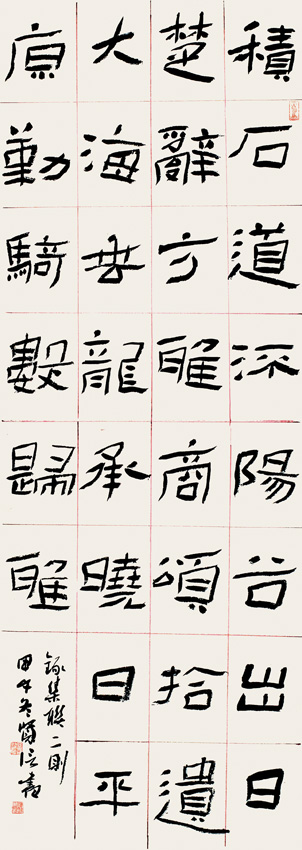 積石道河陽谷出日
楚辭方雅商頌拾遺
大海龍承曉日平
原騎數歸雅
錄集聯二則
甲午冬書